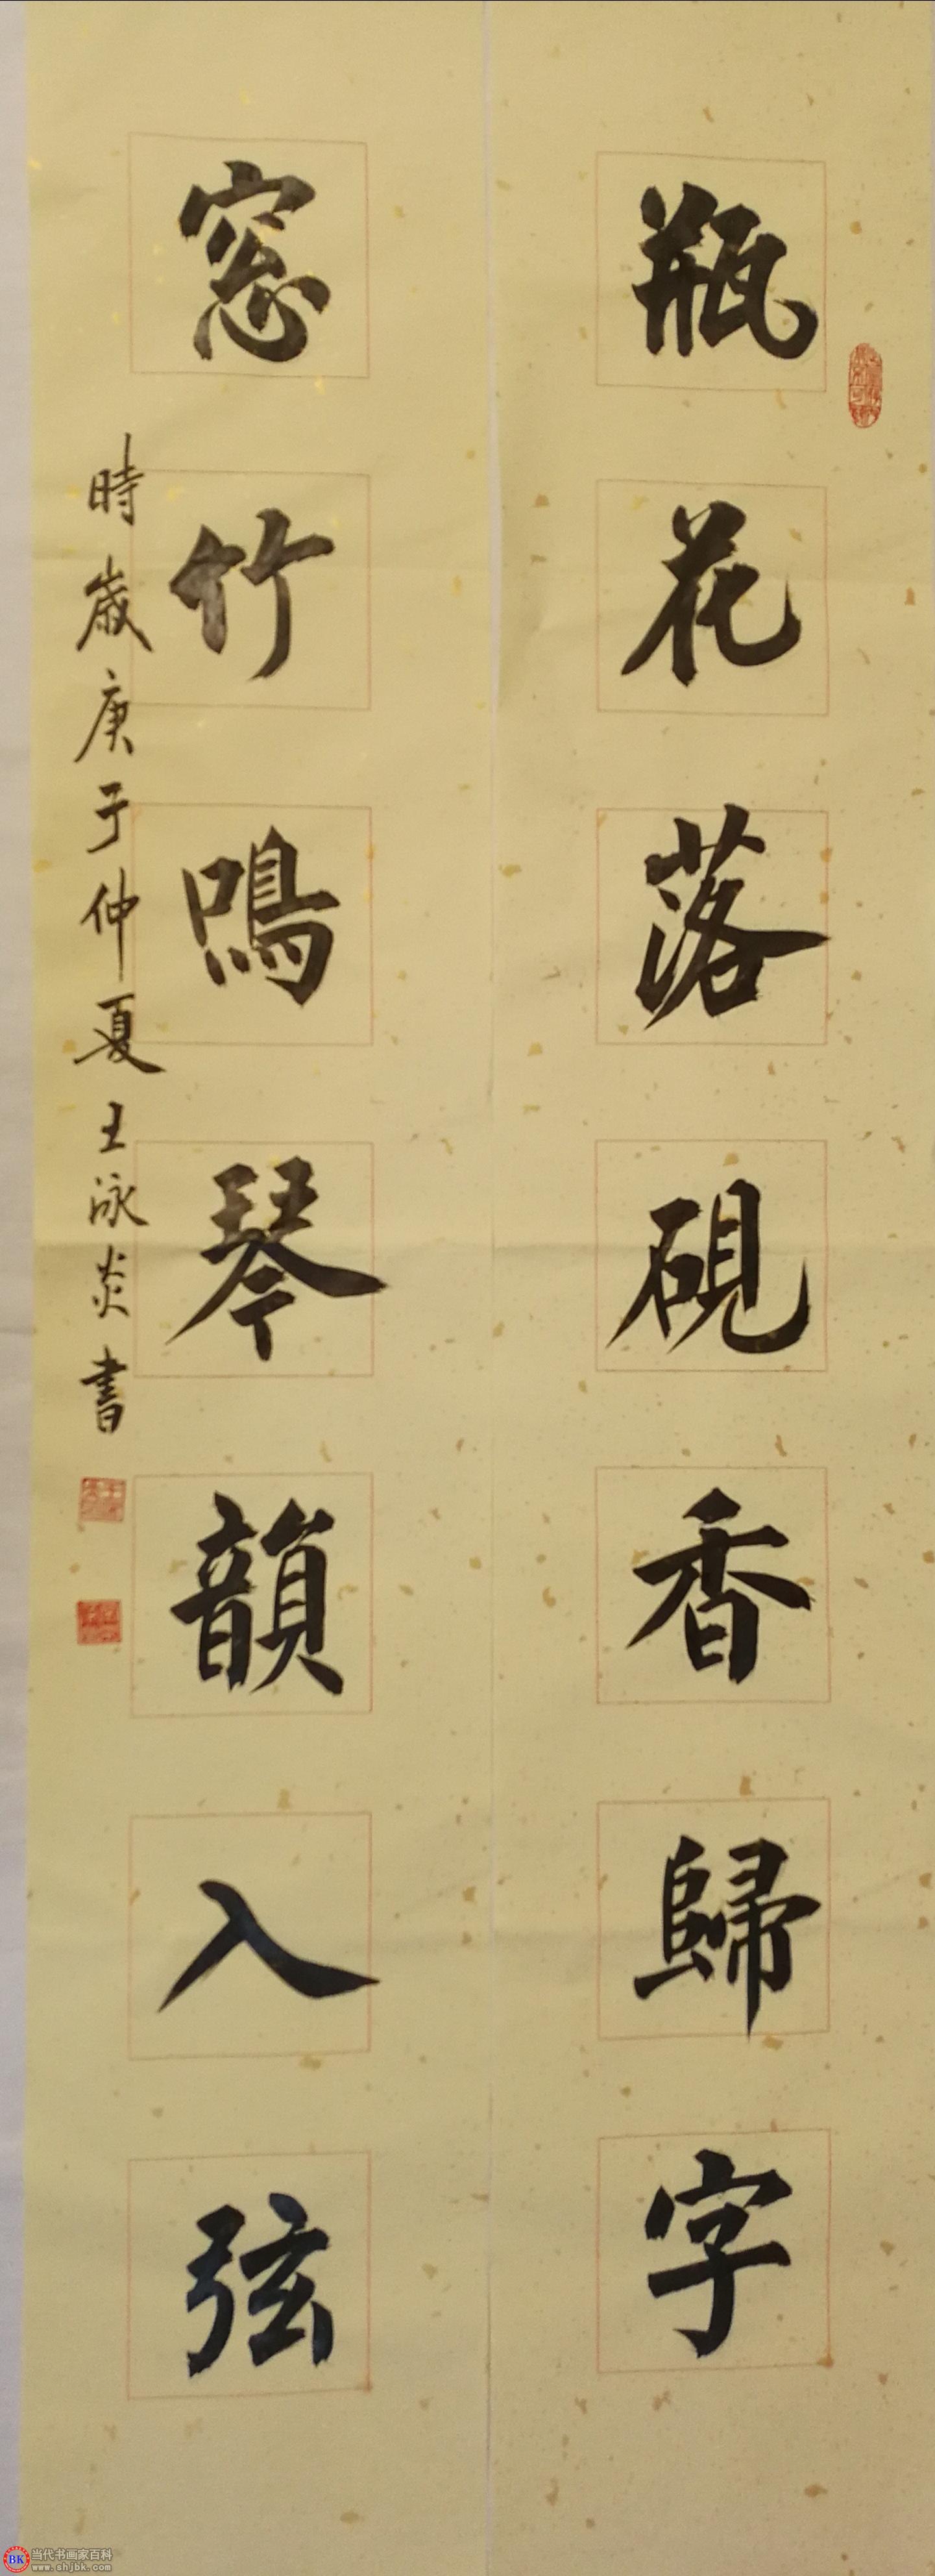 瓶花落硯香歸字
窓竹鳴琴韻入弦
時歲庚子仲夏王泳炎書
BK
当代书画家百科
www.shjbk.com